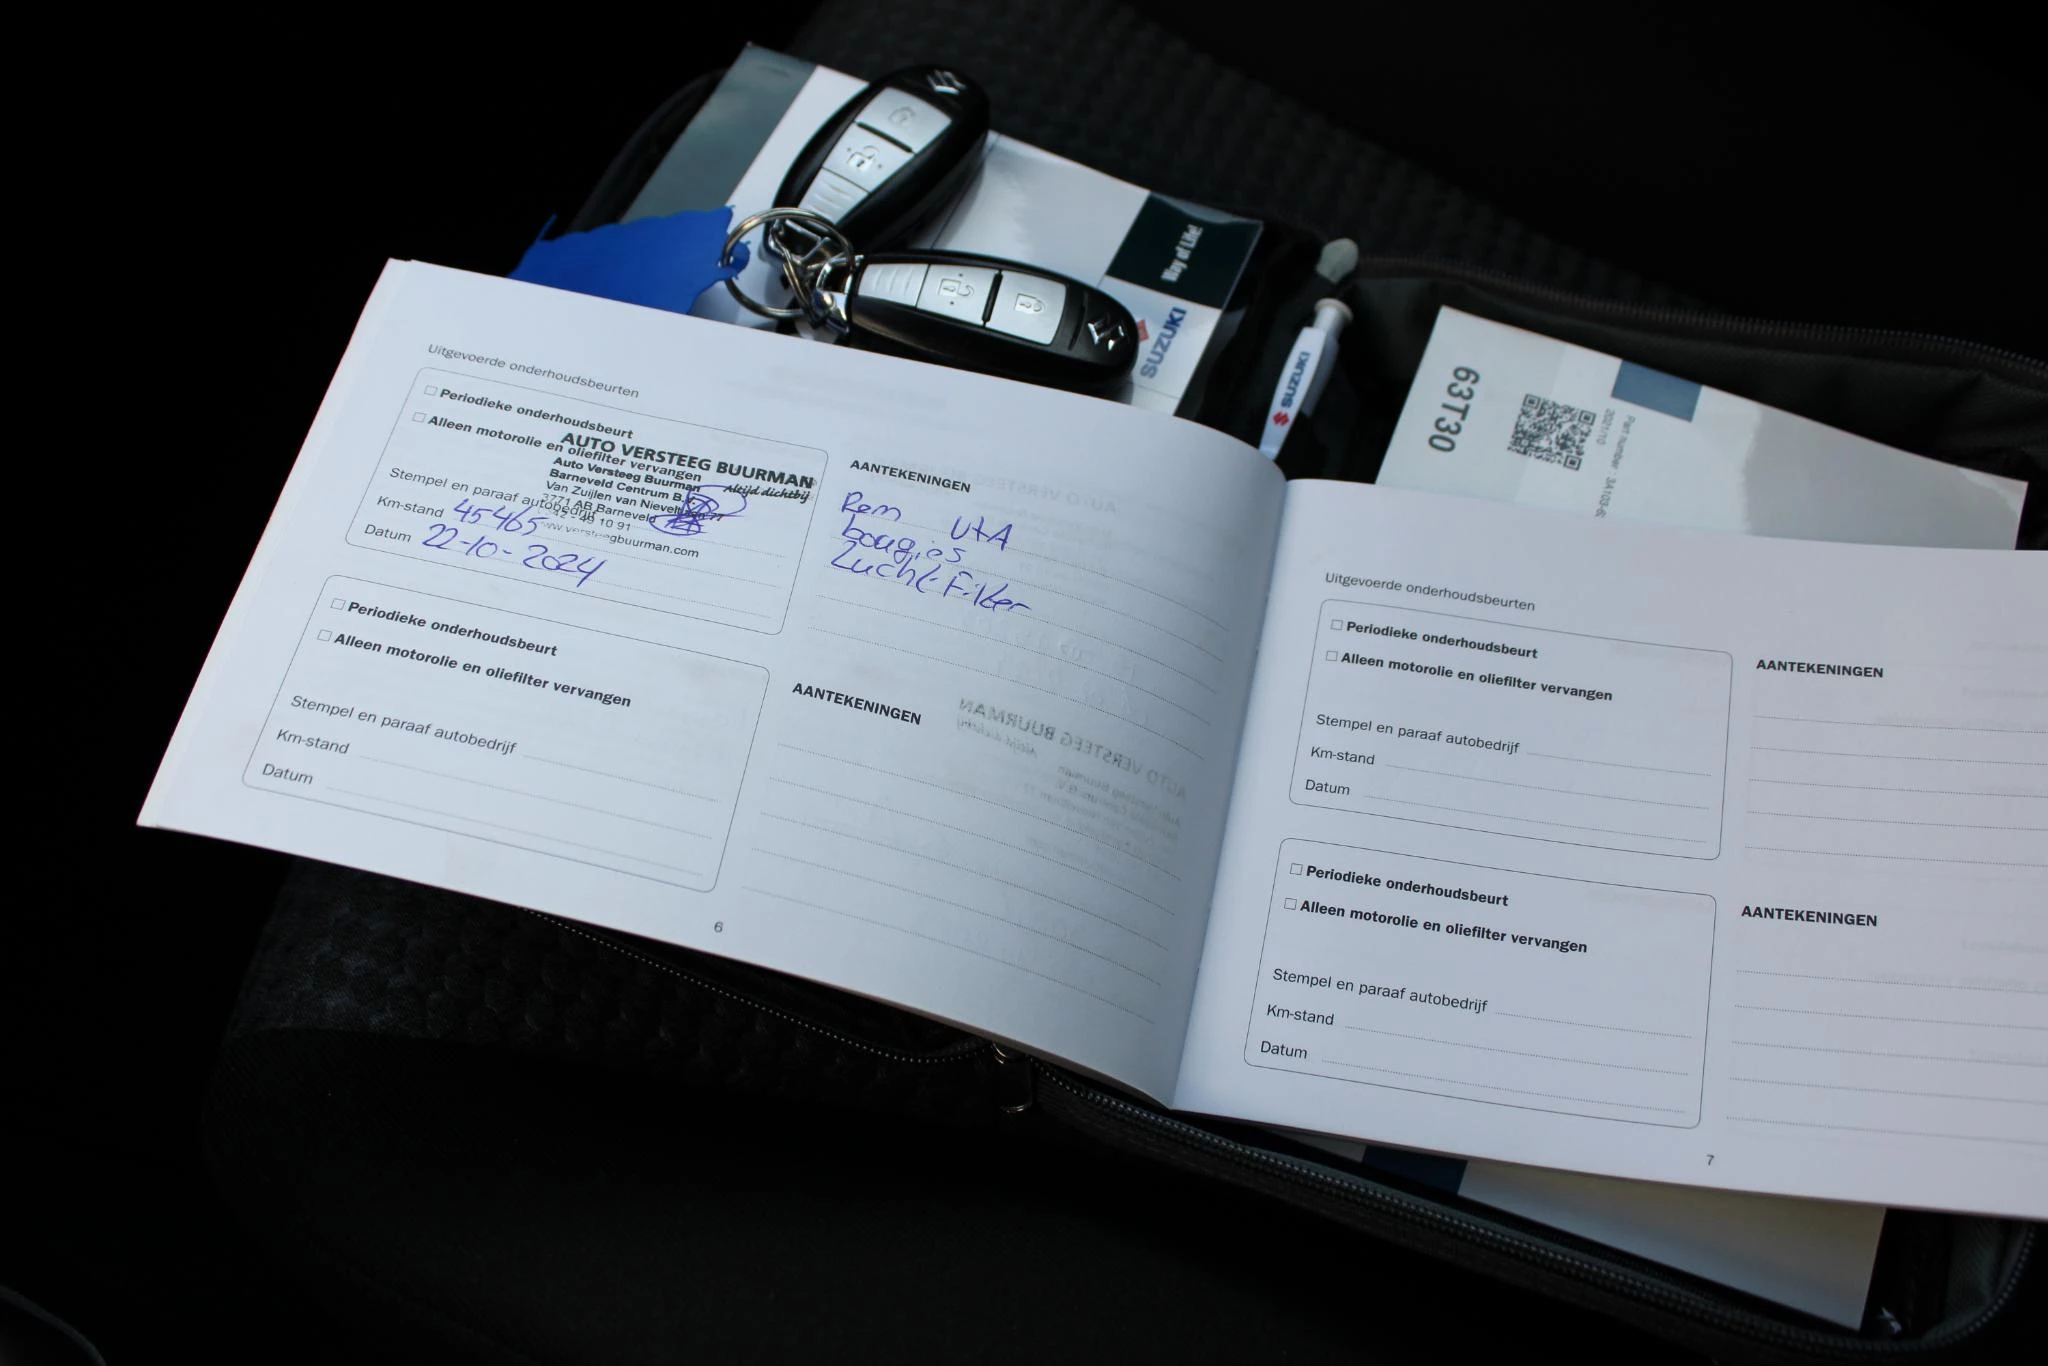 Way of Life!
SUZUKI
SUZUKI
63T30
2021/10
Uitgevoerde onderhoudsbeurten
Periodieke onderhoudsbeurt
Alleen motorolie en oliefilter vervangen
AUTO VERSTEEG BUURMAN
Altijd dichtbij
Auto Versteeg Buurman
Barneveld Centrum B.V.
Van Zuijlen van Nievelt
3771 AB Barneveld
42 - 49 10 91
www.versteegbuurman.com
Stempel en paraaf autobedrijf
Km-stand 45465
Datum 22-10-2024
AANTEKENINGEN
Rem V+A
bougies
Luchtfilter
Periodieke onderhoudsbeurt
Alleen motorolie en oliefilter vervangen
Stempel en paraaf autobedrijf
Km-stand
Datum
AANTEKENINGEN
6
Uitgevoerde onderhoudsbeurten
Periodieke onderhoudsbeurt
Alleen motorolie en oliefilter vervangen
Stempel en paraaf autobedrijf
Km-stand
Datum
AANTEKENINGEN
Periodieke onderhoudsbeurt
Alleen motorolie en oliefilter vervangen
Stempel en paraaf autobedrijf
Km-stand
Datum
AANTEKENINGEN
7